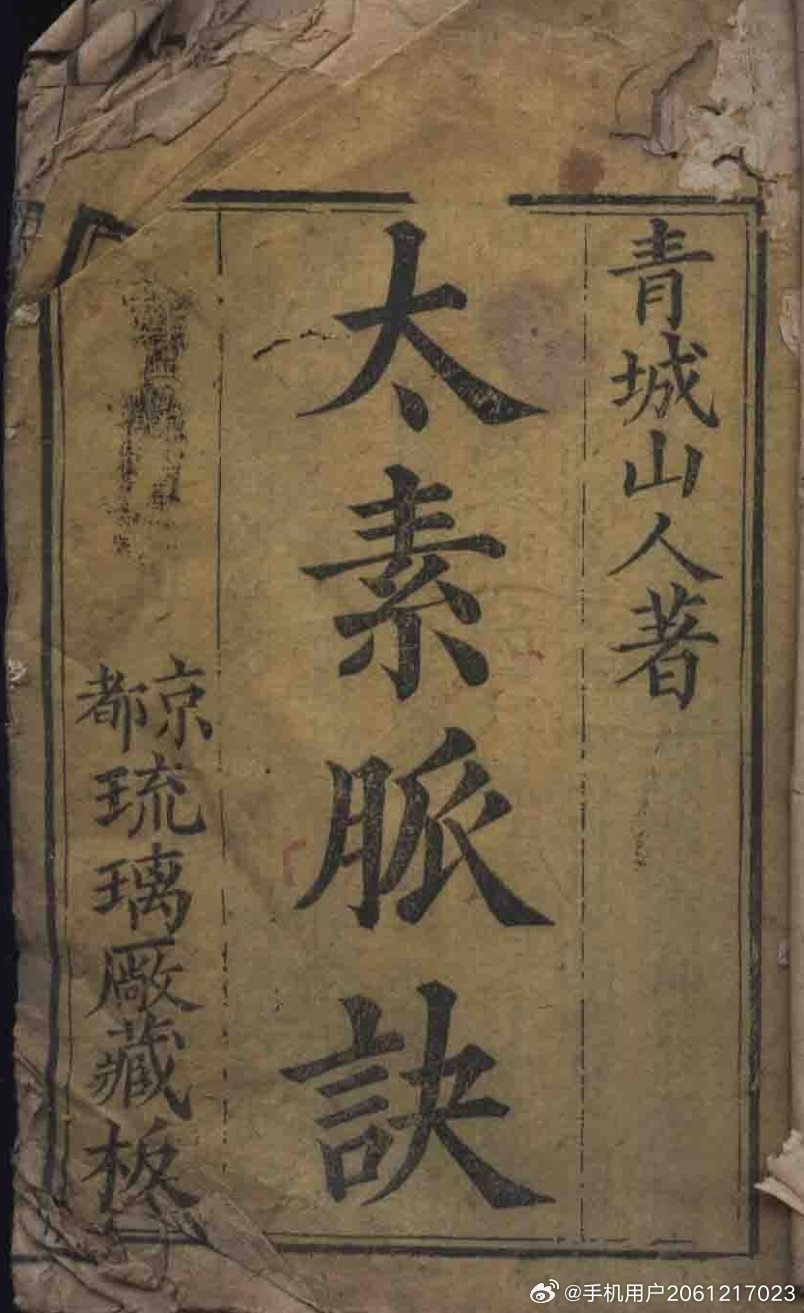 青城山人著
太素脈訣
京都琉璃廠藏板
@手机用户2061217023